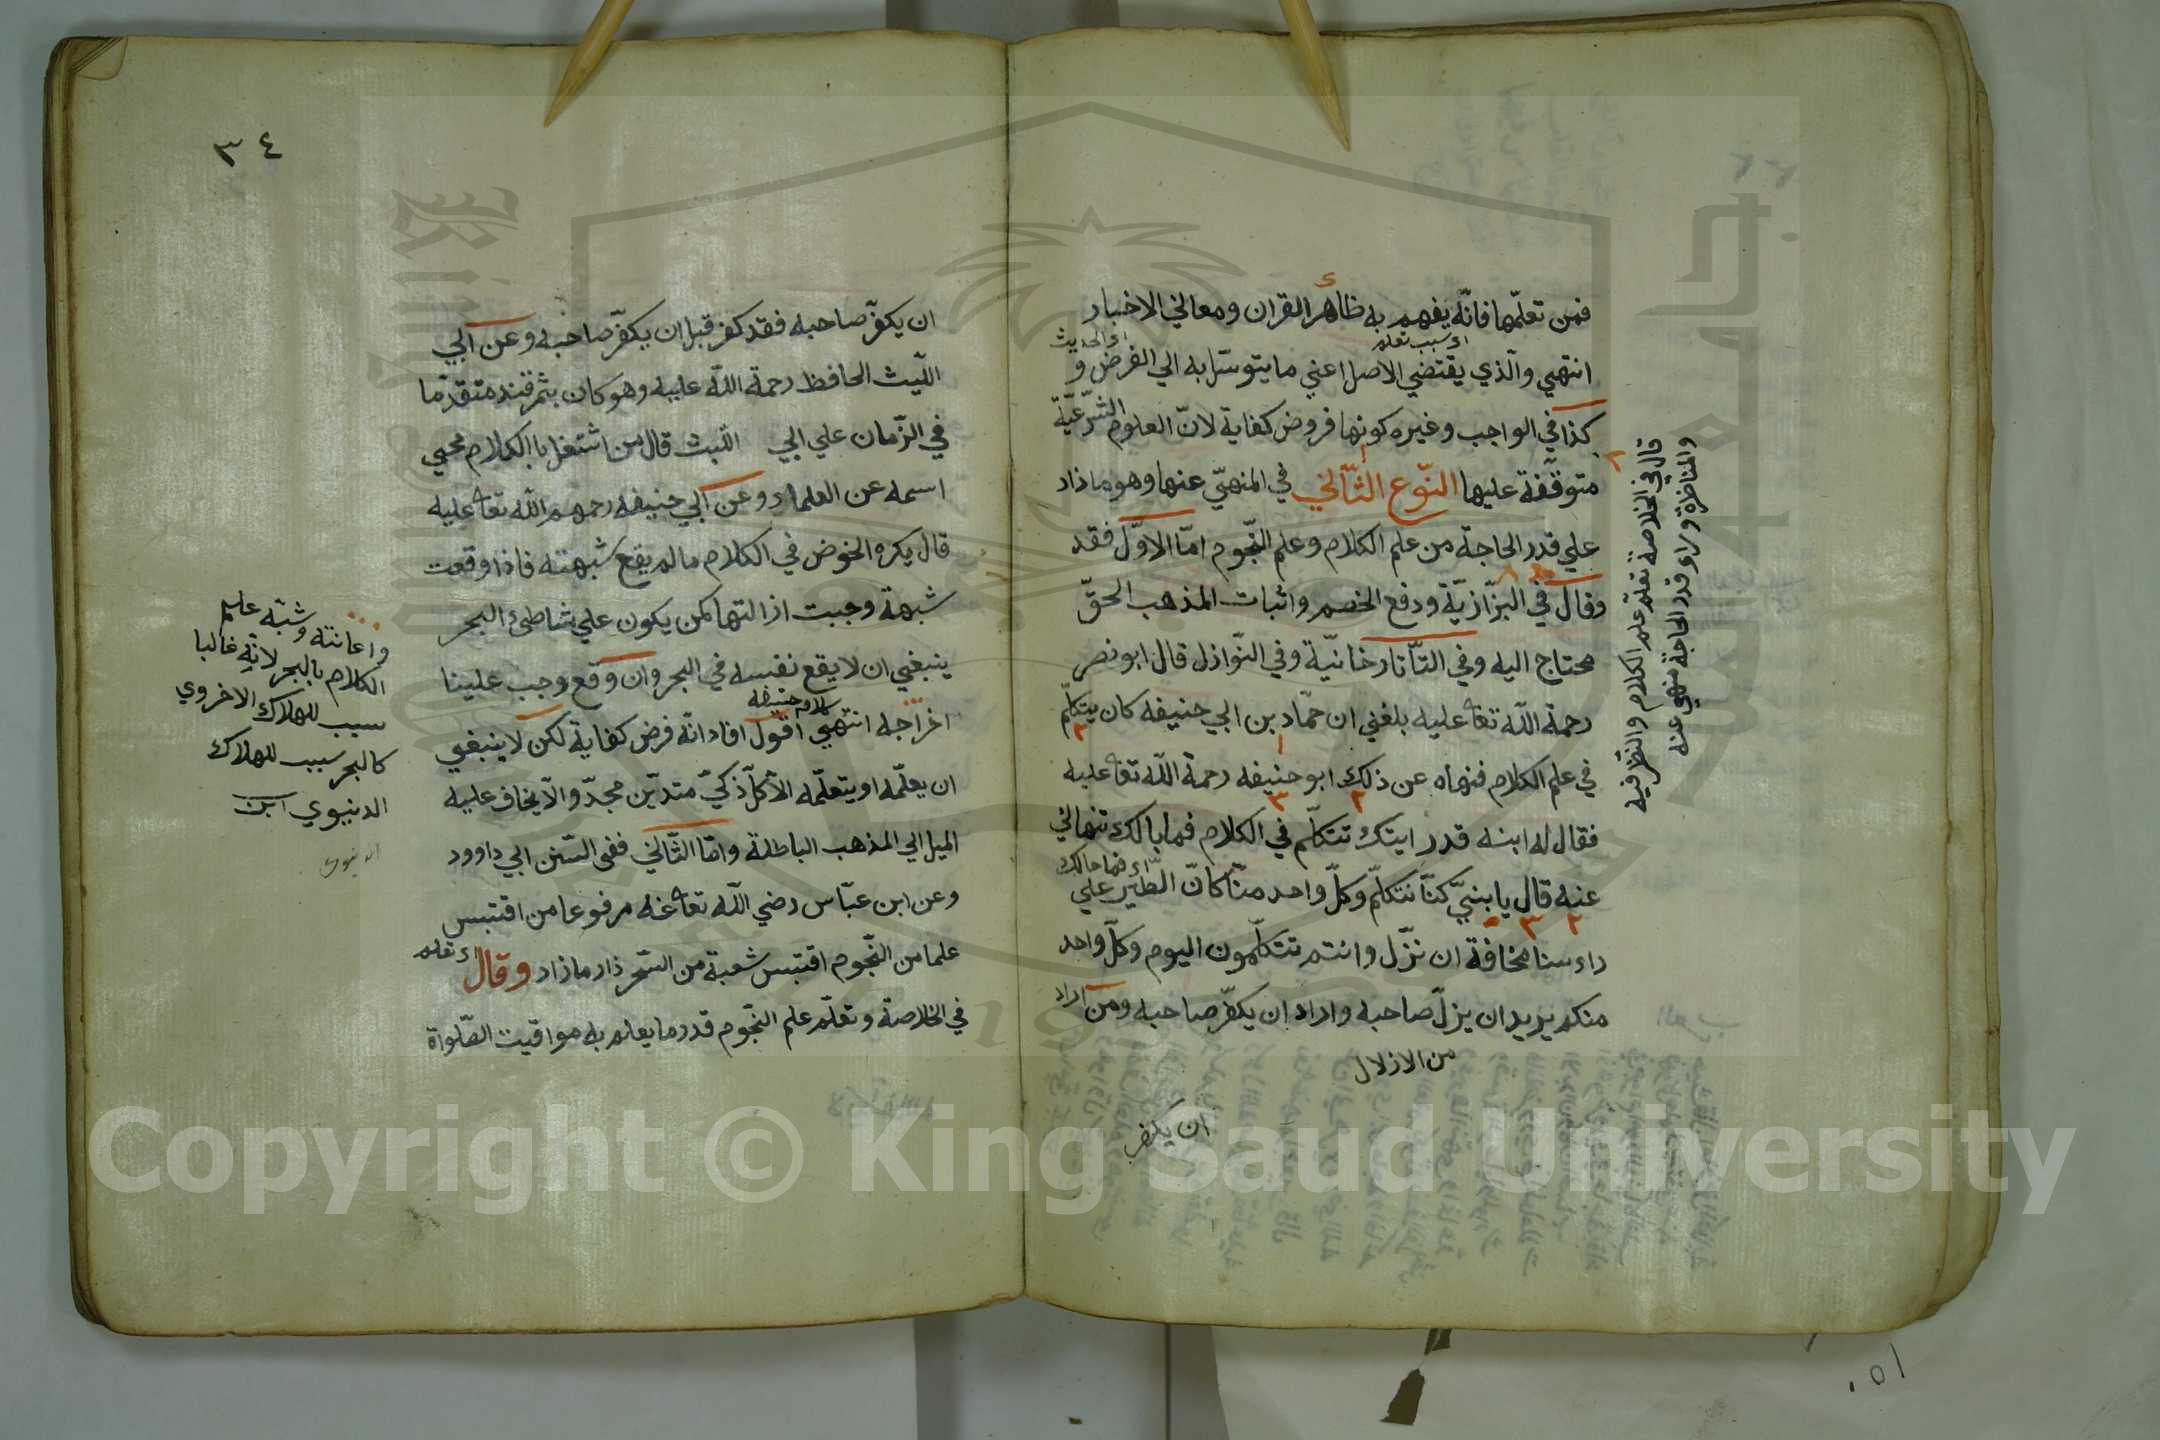 فمن تعلّمها فانّه يفهم به ظاهر القران ومعاني الاخبار
اي بسبب تعلمه
اي الحديث
انتهي والّذي يقتضي الاصل اعني ما يتوسّل به الي الفرض و
كذا في الواجب وغيره كونها فروض كفاية لانّ العلوم الشّرعيّة
متوقّفة عليها النّوع الثّاني في المنهيّ عنها وهو ماذاد
علي قدر الحاجة من علم الكلام وعلم النّجوم امّا الاوّل فقد
وقال في البزّازيّة ودفع الخصم واثبات المذهب الحقّ
محتاج اليه وفي التّاتارخانيّة وفي النّوازل قال ابو نصر
رحمة اللّه تعا عليه بلغني ان حمّاد بن ابي حنيفه كان يتكلّم
في علم الكلام فنهاه عن ذلك ابو حنيفه رحمة اللّه تعا عليه
فقال له ابنه قدر ايتك تتكلّم في الكلام فما بالك تنهاني
اي فما حالك
عنه قال يا بنيّ كنّا نتكلّم وكلّ واحد منّا كانّ الطّير علي
راء سنا مخافة ان نزّل وانتم تتكلّمون اليوم وكلّ واحد
منكم يريد ان يزلّ صاحبه واراد ان يكفّر صاحبه ومن اراد
من الازلال
ان يكفر
قال في الخلاصة تعلّم علم الكلام والنّظر فيه
والمناظرة وراء قدر الحاجة منهي عنه
٣٤
ان يكفّر صاحبه فقد كفر قبل ان يكفّر صاحبه وعن ابي
اللّيث الحافظ رحمة اللّه عليه وهو كان بثمرقند متقدّما
في الزّمان علي ابي اللّيث قال من اشتغل بالكلام محي
اسمه عن العلماء وعن ابي حنيفه رحمهم اللّه تعا عليه
قال يكره الخوض في الكلام ما لم يقع شبهته فاذا وقعت
شبهة وجبت ازالتها كمن يكون علي شاطئ البحر
ينبغي ان لا يقع نفسه في البحر وان وقع وجب علينا
كلام حنيفه
اخراجه انتهي اقول افاد انّه فرض كفاية لكن لا ينبغي
ان يعلّمه او يتعلّمه الّا كلّ ذكيّ متديّن مجدّ والّا يخاف عليه
الميل الي المذهب الباطلة وامّا الثّاني ففي السّنن ابي داوود
وعن ابن عبّاس رضي اللّه تعا عنه مرفوعا من اقتبس
اي تعلم
علما من النّجوم اقتبس شعبة من السّحر زاد ما زاد وقال
في الخلاصة وتعلّم علم النّجوم قدر ما يعلم به مواقيت الصّلواة
واعانته وشبّه علم
الكلام بالبحر لانّه غالبا
سبب للهلاك الاخروي
كالبحر سبب للهلاك
الدنيوي
الدنيوي
Copyright © King Saud University